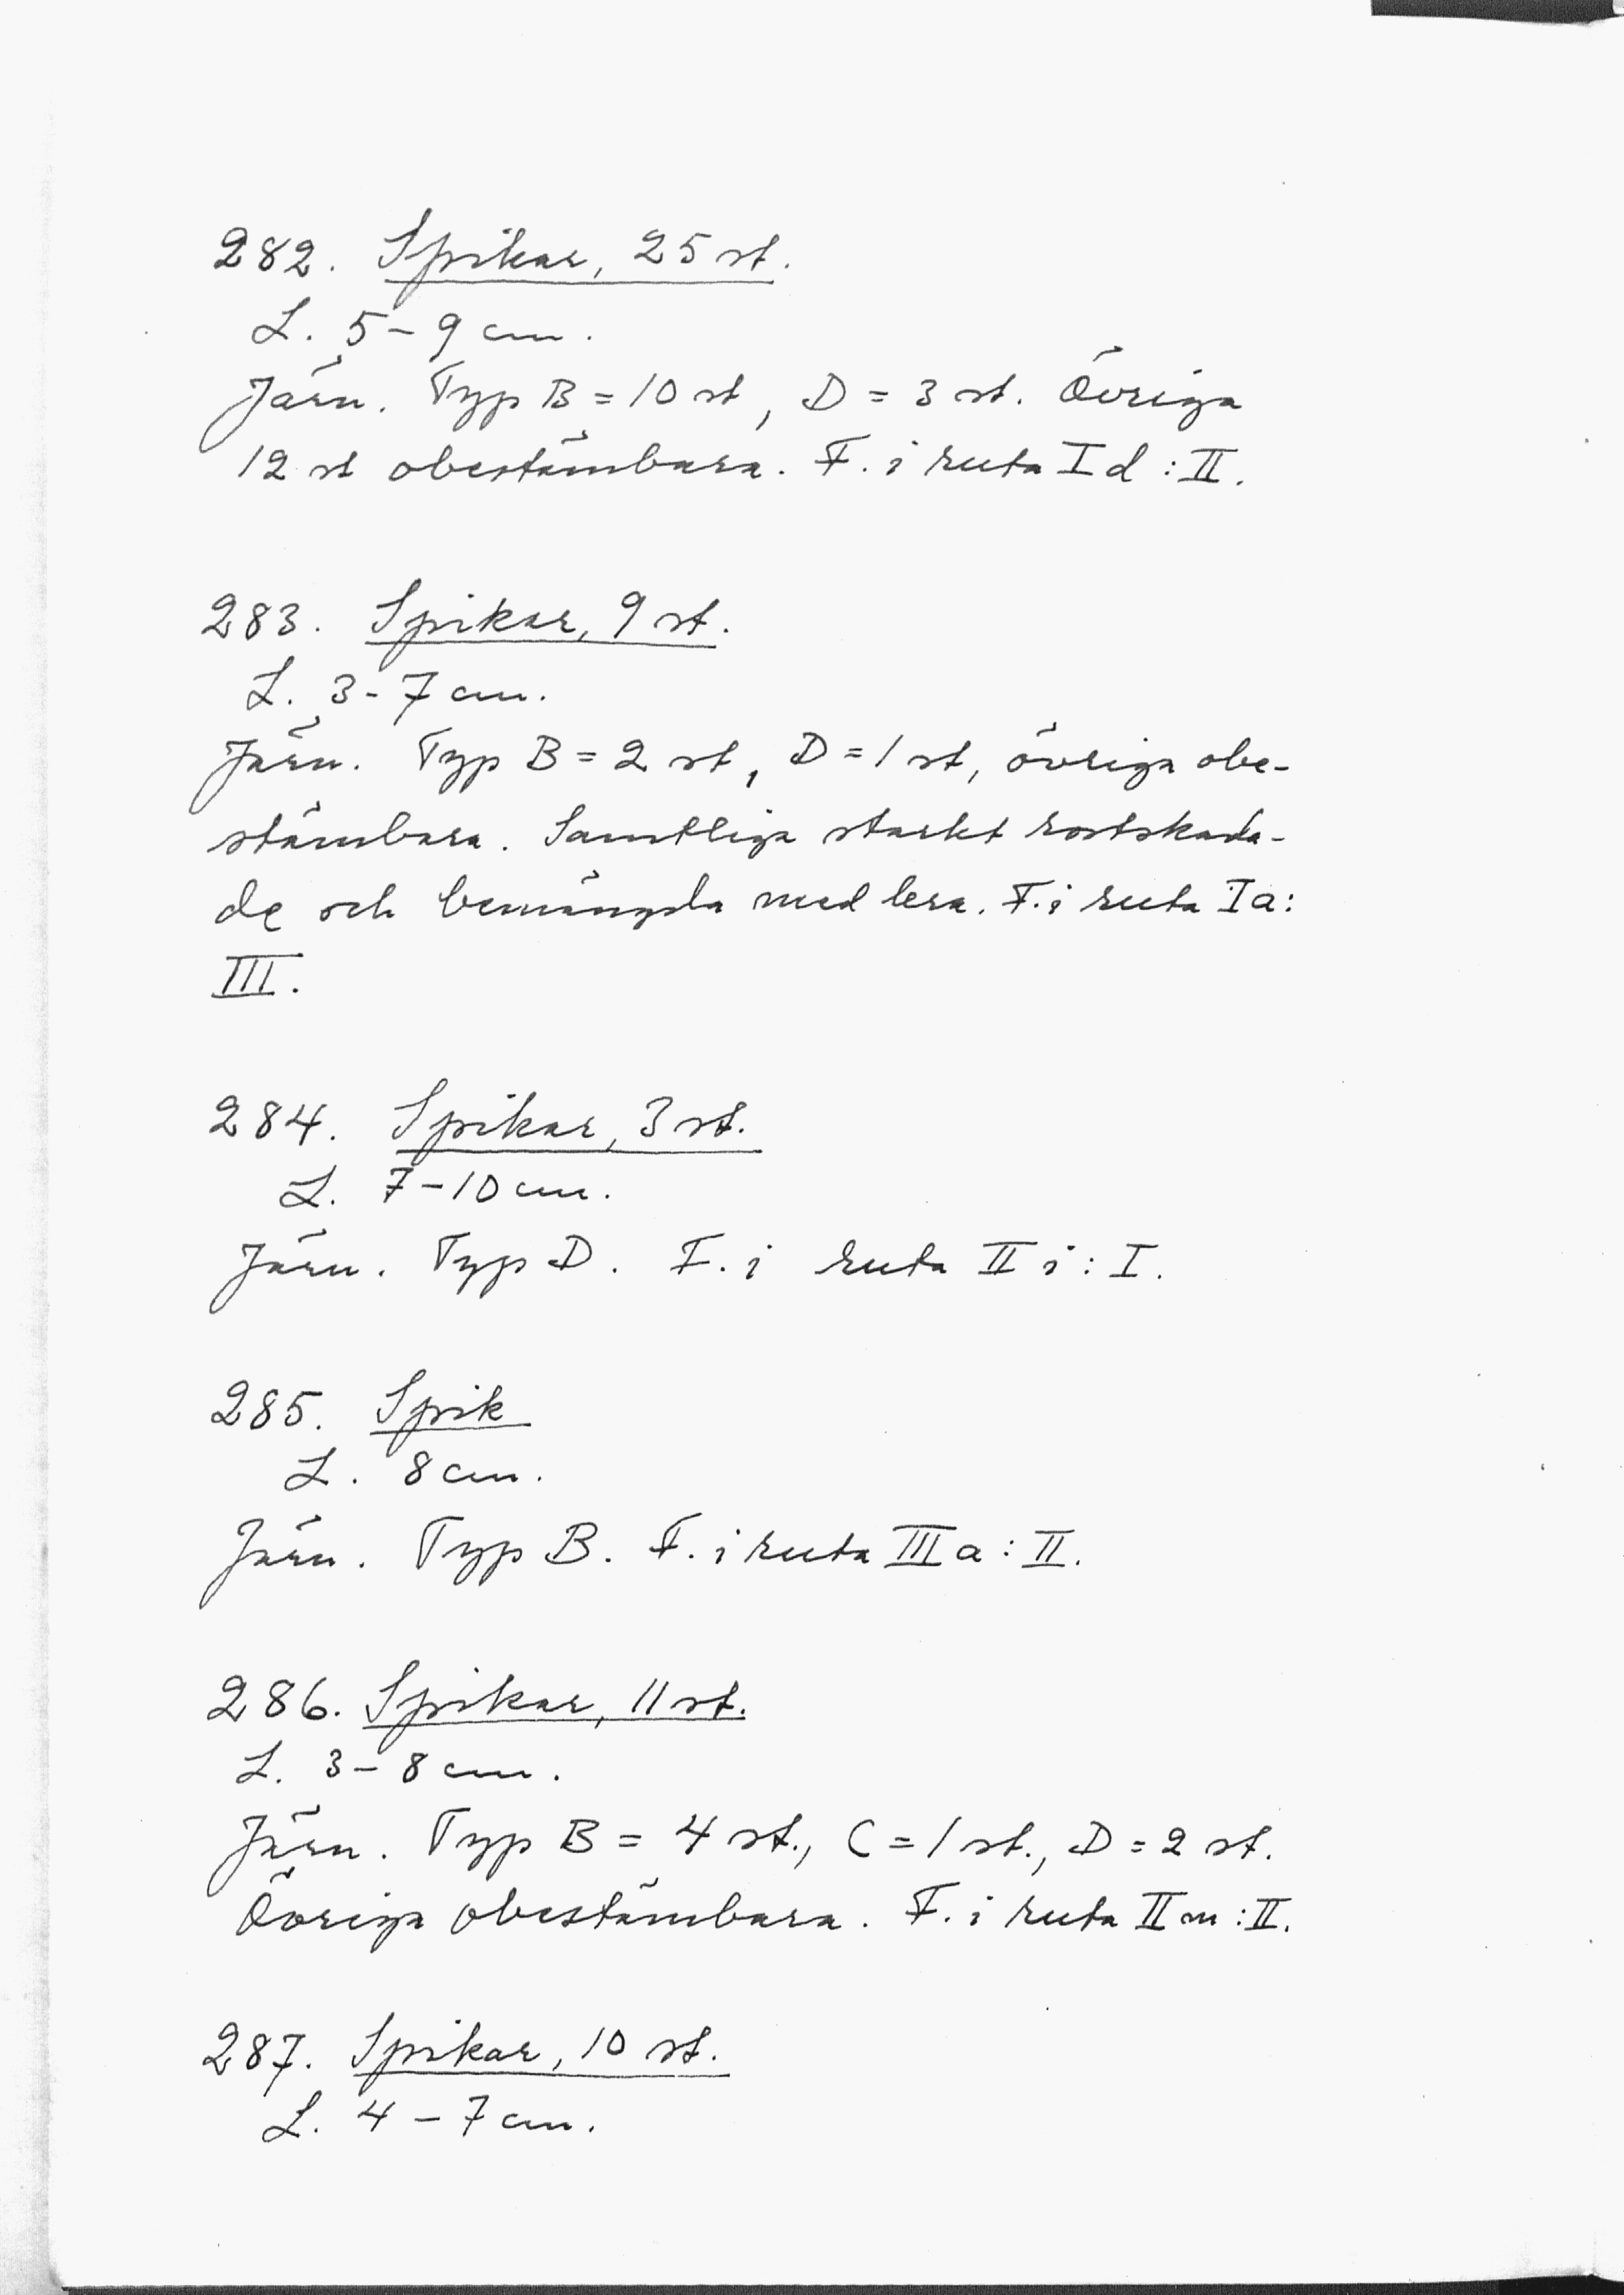 282. Spikar, 25 st.
L. 5-9 cm.
Järn. Typ B = 10 st, D = 3 st. Övriga
12 st obestämbara. F. i ruta I d : II.
283. Spikar, 9 st.
L. 3-7 cm.
Järn. Typ B = 2 st, D = 1 st, övriga obe-
stämbara. Samtliga starkt rostskada-
de och bemängda med lera. F. i ruta I a:
III.
284. Spikar, 3 st.
L. 7-10 cm.
Järn. Typ D. F. i ruta II i : I.
285. Spik
L. 8 cm.
Järn. Typ B. F. i ruta III a : II.
286. Spikar, 11 st.
L. 3-8 cm.
Järn. Typ B = 4 st., C = 1 st., D = 2 st.
Övriga obestämbara. F. i ruta II m : II.
287. Spikar, 10 st.
L. 4-7 cm.